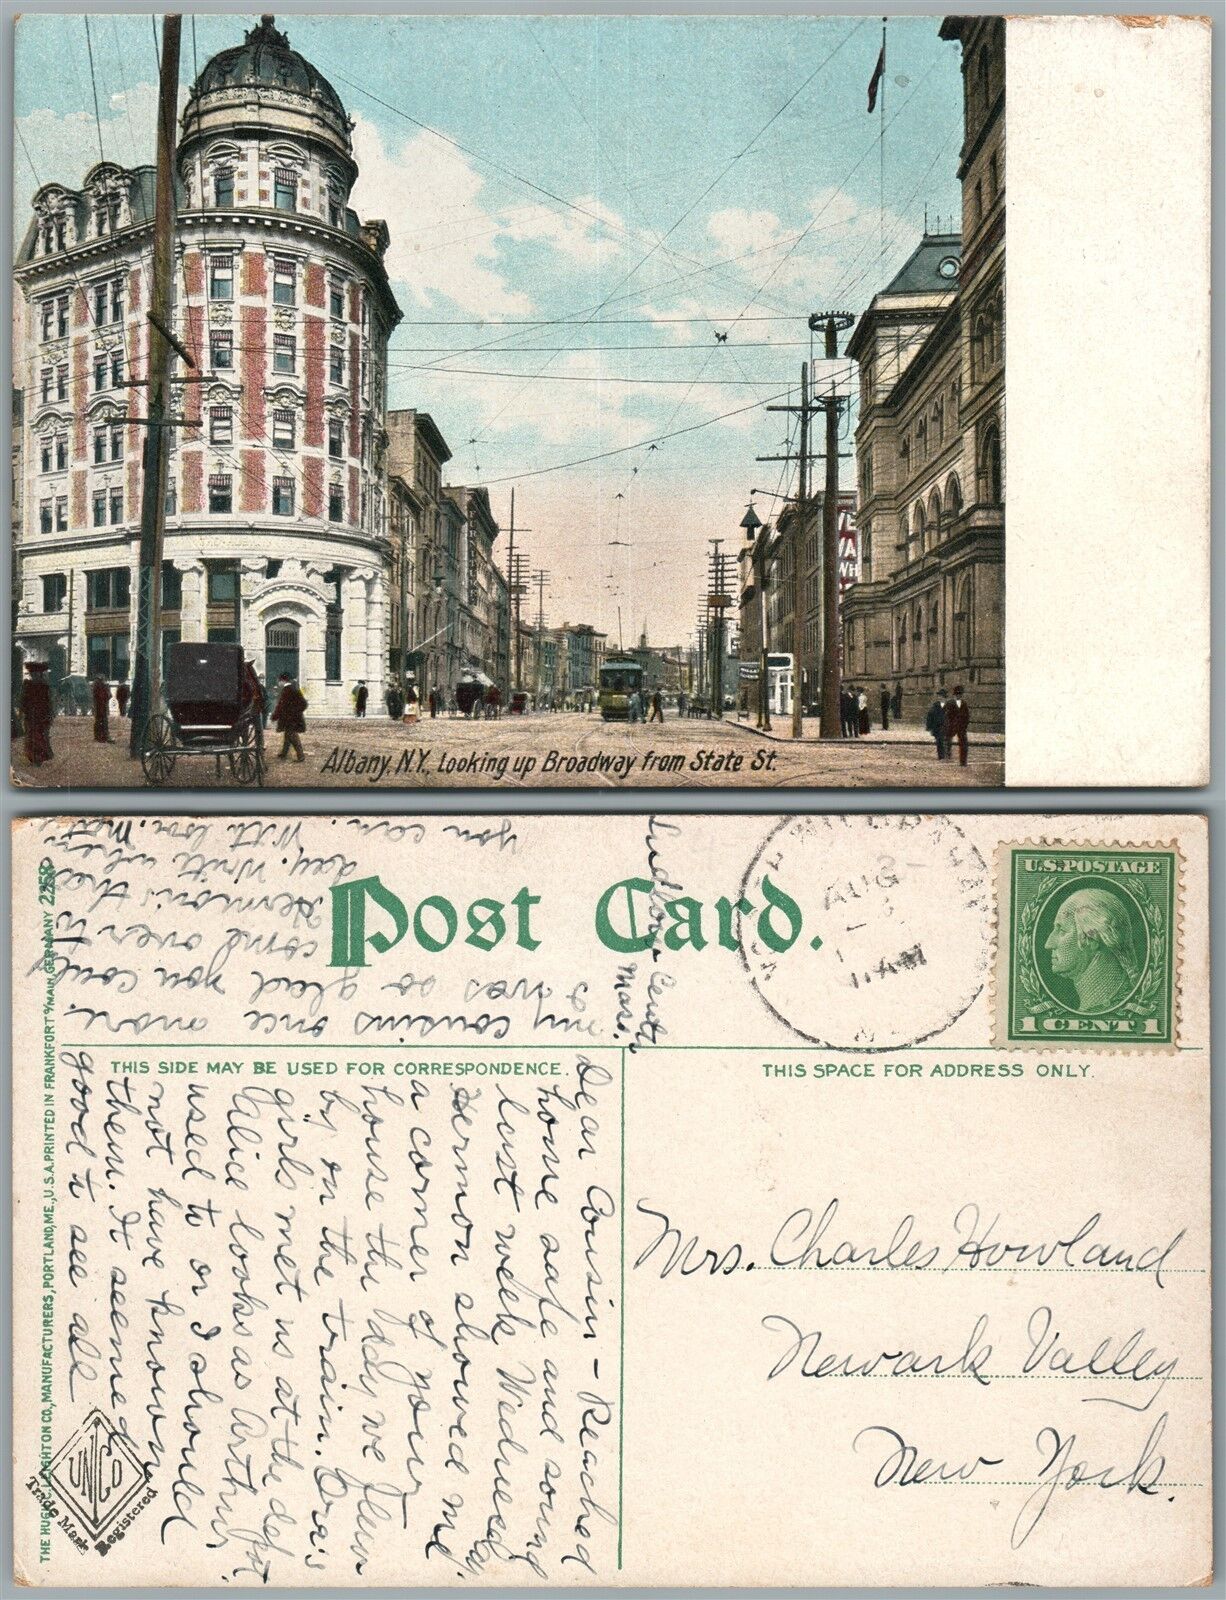 Albany, N.Y., Looking up Broadway from State St.
Post Card.
U.S. POSTAGE
1 CENT 1
AUG
11 AM
THIS SIDE MAY BE USED FOR CORRESPONDENCE.
THIS SPACE FOR ADDRESS ONLY.
THE HUGH C. LEIGHTON CO., MANUFACTURERS, PORTLAND, ME., U.S.A. PRINTED IN FRANKFORT o/MAIN, GERMANY
Trade Mark Registered
Ludlow Center
Mass.
Dear Cousin - Reached
home safe and sound
last week Wednesday.
Hermon showed me
a corner of your
house the day we flew
by on the train.
girls met us at the depot.
Alice looks as Arthur
used to or I should
not have known
them. It seemed
good to see all
my cousins once more.
I was so glad you could
come over to
Hermon's that
day. Write when
you can. With love.
Mrs. Charles Howland
Newark Valley
New York.